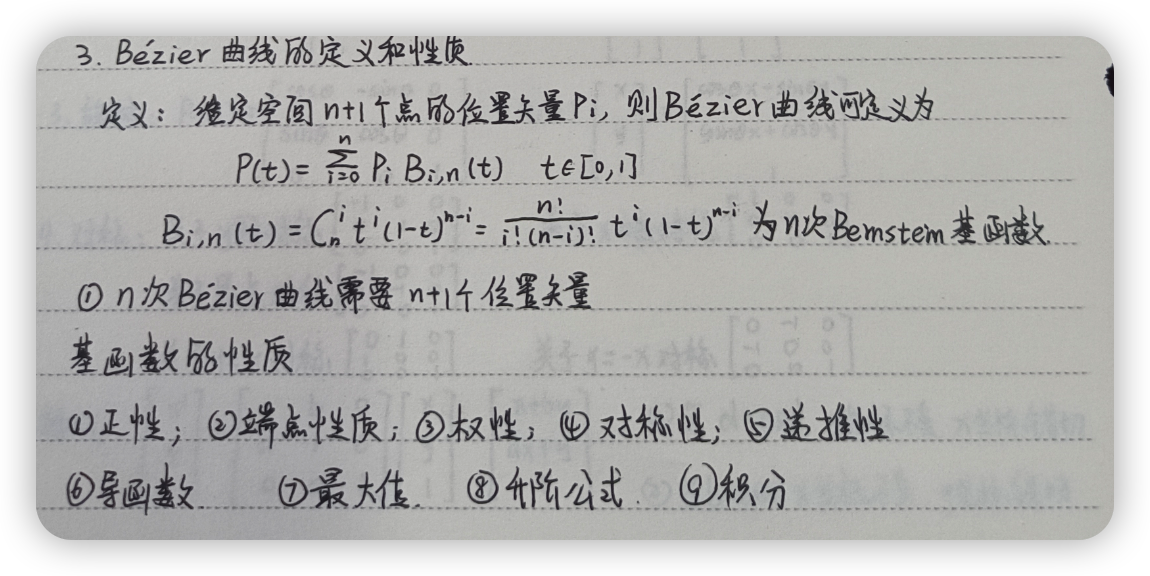 3. Bézier 曲线的定义和性质
定义：给定空间 n+1个点的位置矢量Pi，则Bézier曲线可定义为
P(t)=∑_{i=0}^{n} P_i B_{i,n}(t) t∈[0,1]
B_{i,n}(t)=C_n^i t^i(1-t)^{n-i}=\frac{n!}{i!(n-i)!} t^i(1-t)^{n-i} 为n次Bernstein基函数
① n次Bézier曲线需要 n+1个位置矢量
基函数的性质
①正性；②端点性质；③权性；④对称性；⑤递推性
⑥导函数. ⑦最大值. ⑧升阶公式. ⑨积分